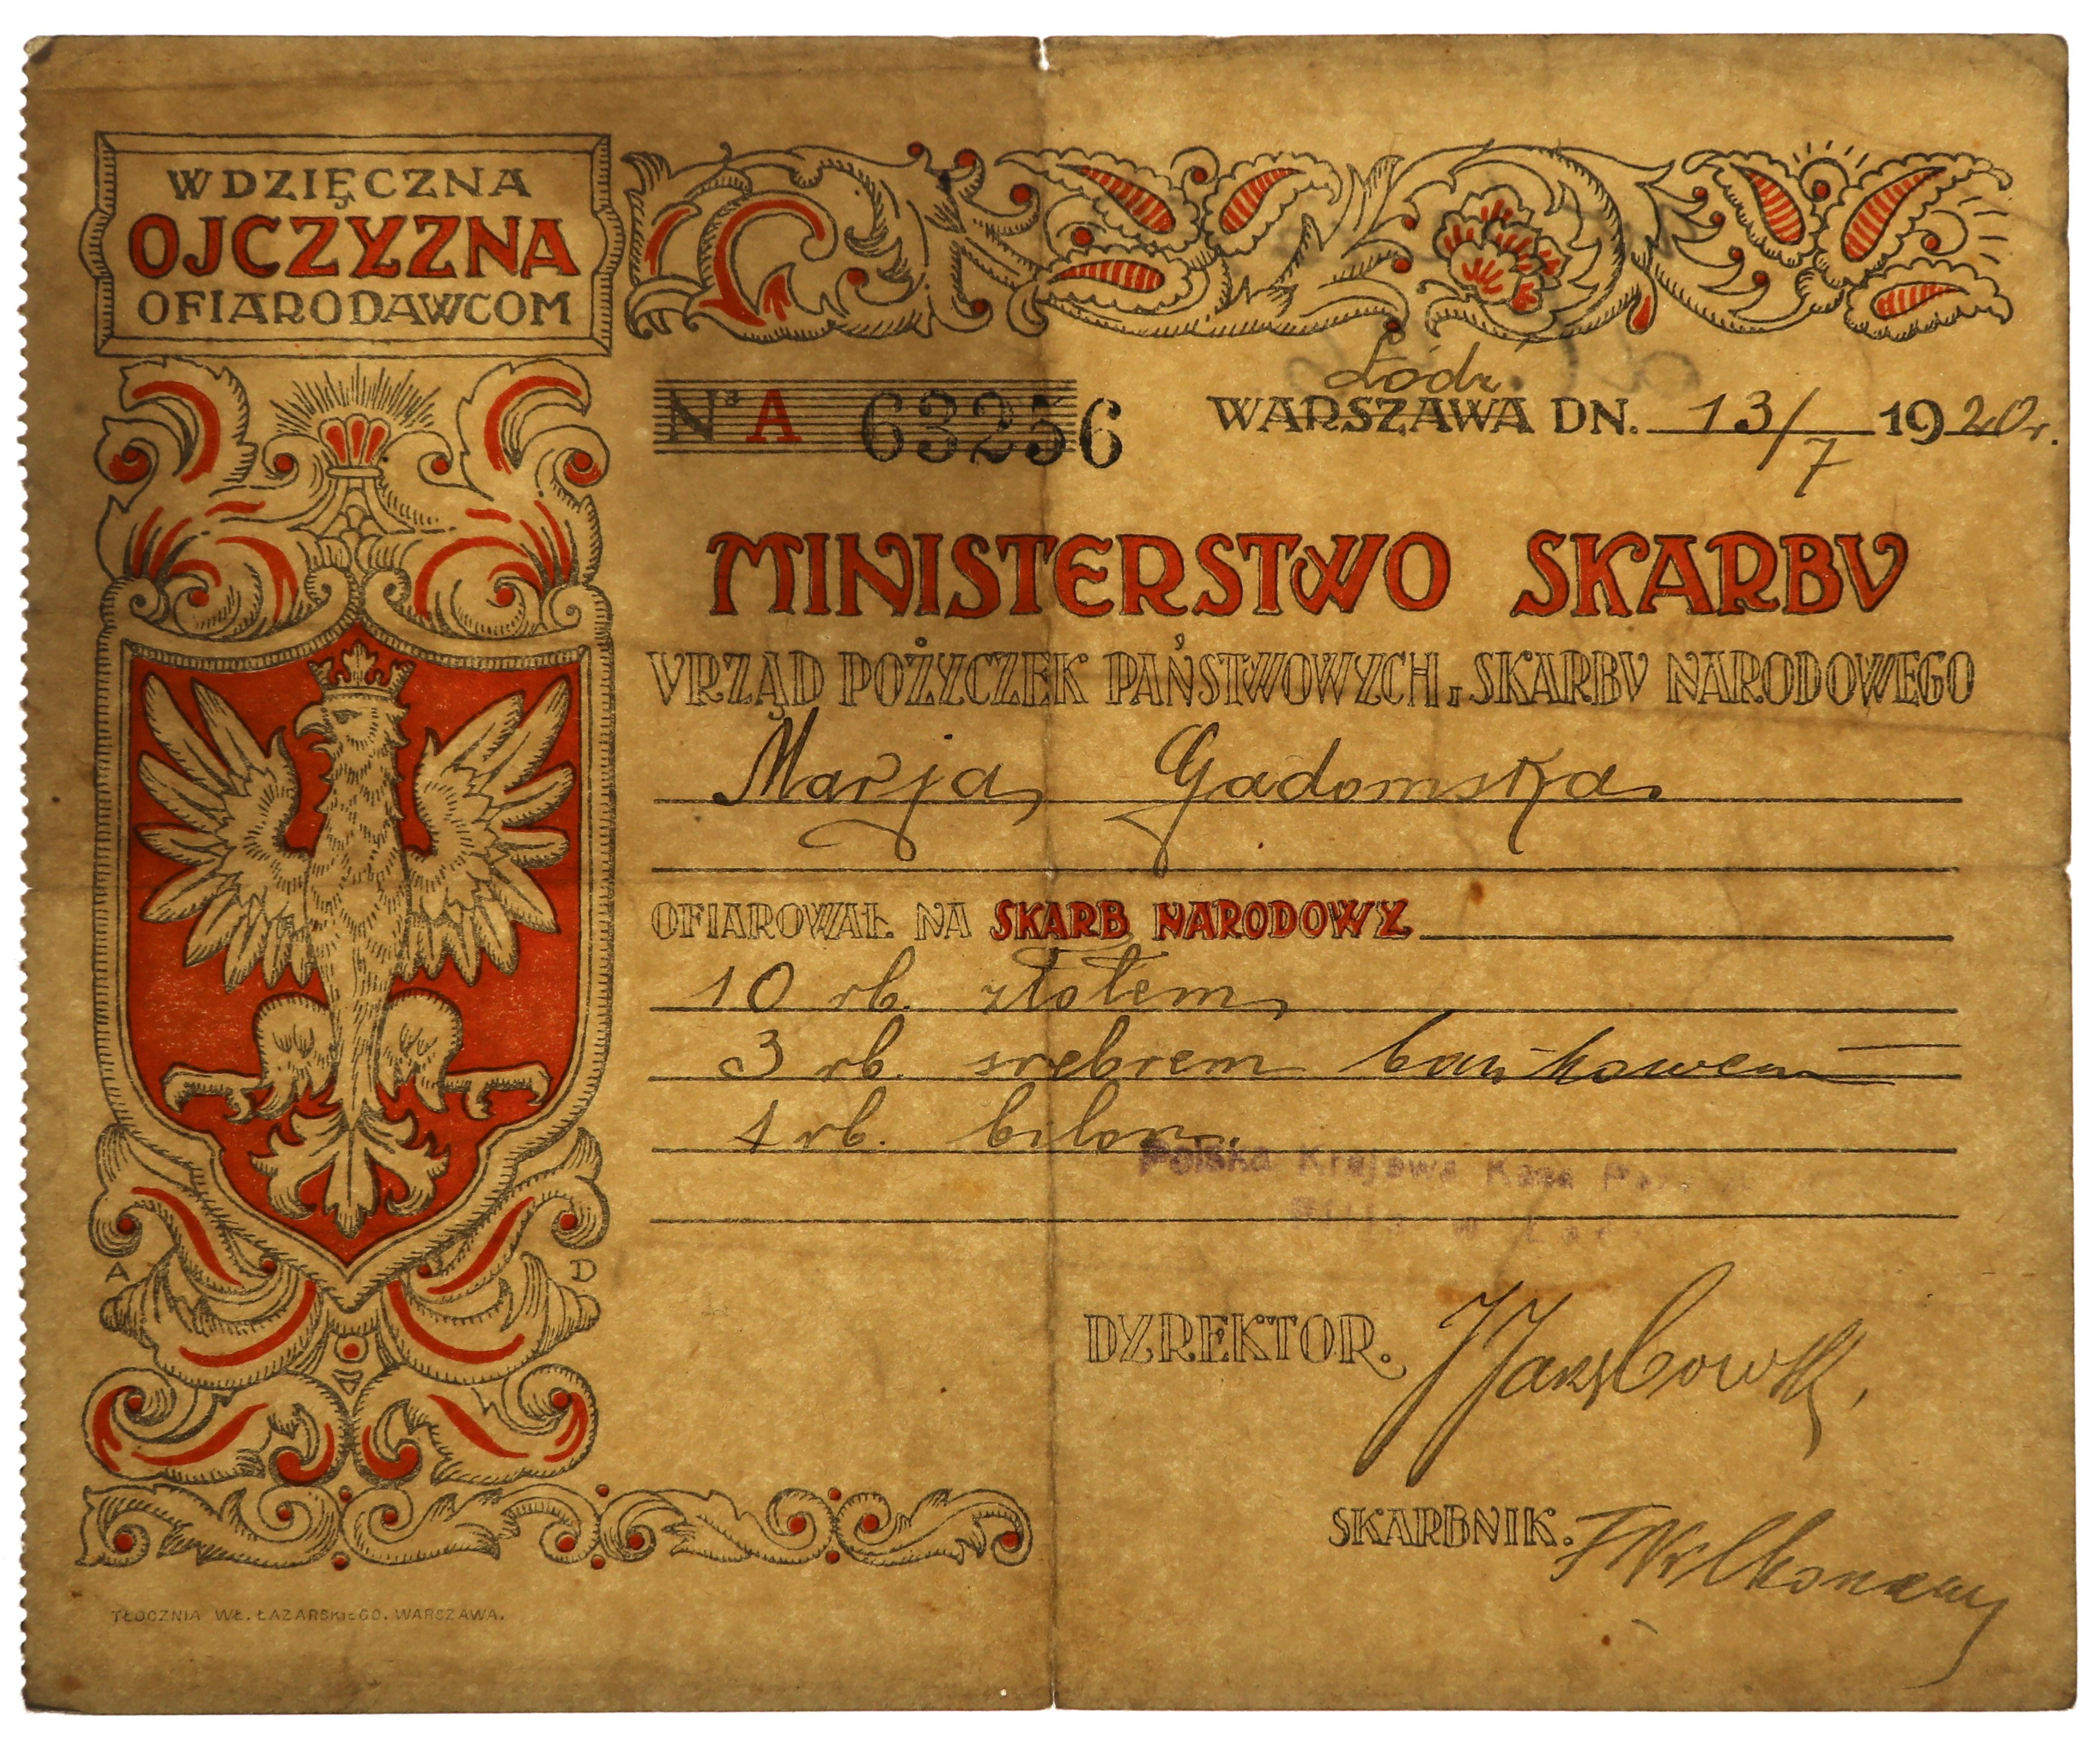 WDZIĘCZNA
OJCZYZNA
OFIARODAWCOM
Nº A 63256
Łódź.
WARSZAWA DN. 13/7 1920r.
MINISTERSTWO SKARBV
VRZĄD POŻYCZEK PAŃSTWOWYCH I SKARBV NARODOWEGO
Marja Gadomska
OFIAROWAŁ NA SKARB NARODOWY
10 rb. złotem
3 rb. srebrem bankowem
1 rb. bilon.
Polska Krajowa Kasa
w
DYREKTOR.
SKARBNIK.
A D
TŁOCZNIA WŁ. ŁAZARSKIEGO. WARSZAWA.